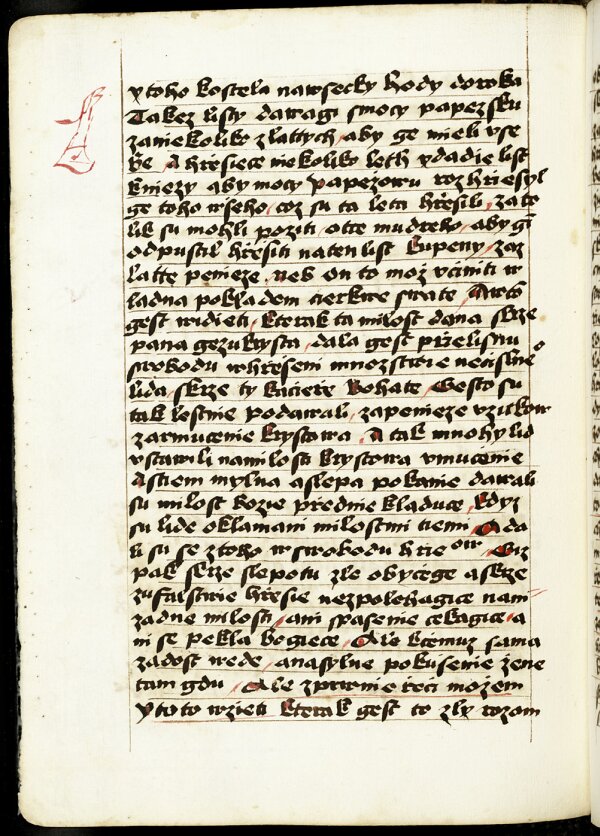 v toho kostela nawsecky hody do roka
Takez listy dawagi s mocy papezsku
za niekoliko zlattych aby ge mieli v se
be A hrsiece niekoliko leth vdadie list
kniezy aby mocy papezowu rozhriesyl
ge toho wseho coz su ta leta hrsesili za to
lik su mohli poziti otce mudreho aby gi
odpustil hrsesiti na ten list kupeny zaz
latte penieze neb on to moz vciniti w
ladna pokladem cierkwe swate A w to
gest widieti kterak ta milost dana skrze
pana gezukrysta dala gest przelisnu
swobodu w hrseseni mnozstwie necislne
lida skrze ty kaciere bohate Gesto su
tak lestnie podawali za penieze vzitkow
zarmucenie krystowa A tak mnohy lid
vstawili na milosti krystowa vmucenie
A s tiem mylna a slepa pokanie dawali
su milost bozie przednie kladuce kdyz
su lide oklamani milostmi tiemi A da
li su se z toho w swobodu hrie ow Giz
pak skrze slepotu zle obycege a skrze
zufalstwie hrsesie nezpolehagice na ni
zadne milosti ani spasenie cekagice a
ni se pekla bogiece Ale k temuz sama
zadost wede a nasylne pokusenie zene
tam gdu Ale z prwnie reci mozem
v toto wzieti kterak gest to zly rozom